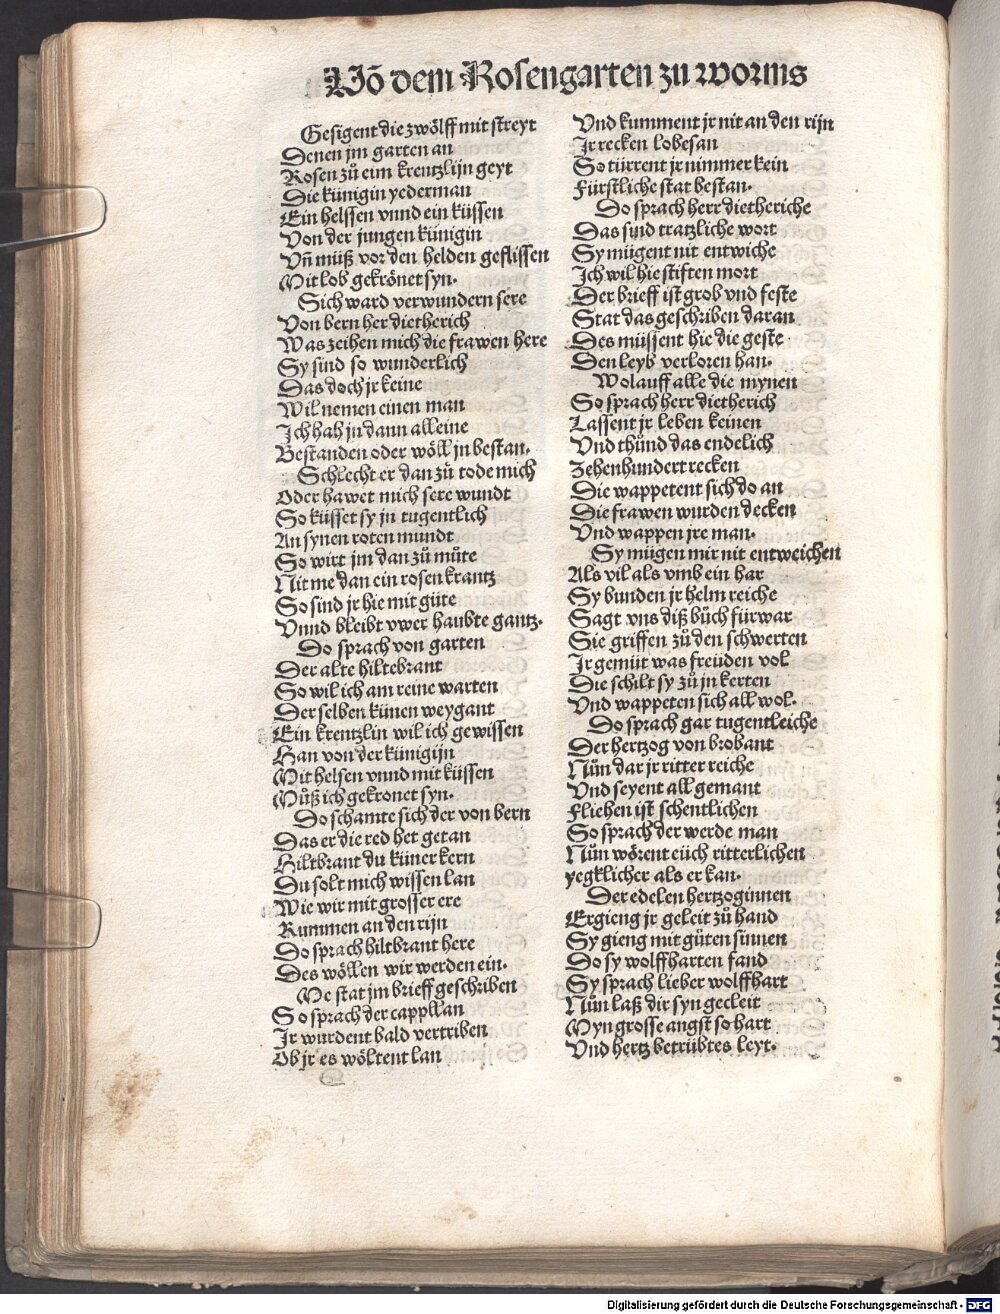 Võ dem Rosengarten zu worms
Gesigent die zwölff mit streyt
Denen jm garten an
Rosen zů eim krentzlijn geyt
Die künigin yederman
Ein helssen vnnd ein küssen
Von der jungen künigin
Vñ müß vor den helden geflissen
Mit lob gekrönet syn.
Sich ward verwundern sere
Von bern her dietherich
Was zeihen mich die frawen here
Sy sind so wunderlich
Das doch jr keine
Wil nemen einen man
Ich hah jn dann alleine
Bestanden oder wöll jn bestan.
Schlecht er dan zů tode mich
Oder hawet mich sere wundt
So küsset sy jn tugentlich
An synen roten mundt
So wirt jm dan zů můte
Nit me dan ein rosen krantz
So sind jr hie mit güte
Vnnd bleibt vwer haubte gantz.
Do sprach von garten
Der alte hiltebrant
So wil ich am reine warten
Der selben künen weygant
Ein krentzlin wil ich gewissen
Han von der künigijn
Mit helsen vnnd mit küssen
Můß ich gekronet syn.
Do schamte sich der von bern
Das er die red het getan
Hiltbrant du küner kern
Du solt mich wissen lan
Wie wir mit grosser ere
Kummen an den rijn
Do sprach hiltbrant here
Des wöllen wir werden ein.
Me stat jm brieff geschriben
So sprach der cappllan
Ir wurdent bald vertriben
Ob jr es wöltent lan
Vnd kumment jr nit an den rijn
Ir recken lobesan
So türrent jr nimmer kein
Fürstliche stat bestan.
Do sprach herr dietheriche
Das sind tratzliche wort
Sy mügent nit entwiche
Ich wil hie stiften mort
Der brieff ist grob vnd feste
Stat das geschriben daran
Des müssent hie die geste
Den leyb verloren han.
Wolauff alle die mynen
So sprach herr dietherich
Lassent jr leben keinen
Vnd thůnd das endelich
Zehenhundert recken
Die wappetent sich do an
Die frawen wurden decken
Vnd wappen jre man.
Sy mügen mir nit entweichen
Als vil als vmb ein har
Sy bunden jr helm reiche
Sagt vns diß bůch fürwar
Sie griffen zů den schwerten
Ir gemüt was freüden vol
Die schilt sy zů jn kerten
Vnd wappeten sich all wol.
Do sprach gar tugentleiche
Der hertzog von brobant
Nůn dar jr ritter reiche
Vnd seyent all gemant
Fliehen ist schentlichen
So sprach der werde man
Nůn wörent eüch ritterlichen
yegklicher als er kan.
Der edelen hertzoginnen
Ergieng jr geleit zů hand
Sy gieng mit gůten sinnen
Do sy wolffharten fand
Sy sprach lieber wolffhart
Nůn laß dir syn gecleit
Myn grosse angst so hart
Vnd hertz betrübtes leyt.
Digitalisierung gefördert durch die Deutsche Forschungsgemeinschaft - DFG